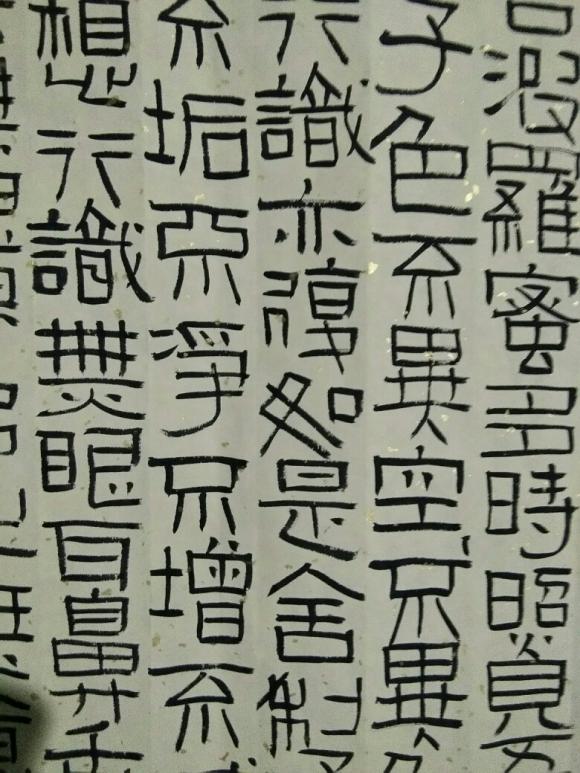 波羅蜜多時照見五
子色不異空不異
行識亦復如是舍利
不垢不淨不增不
想行識無眼耳鼻舌